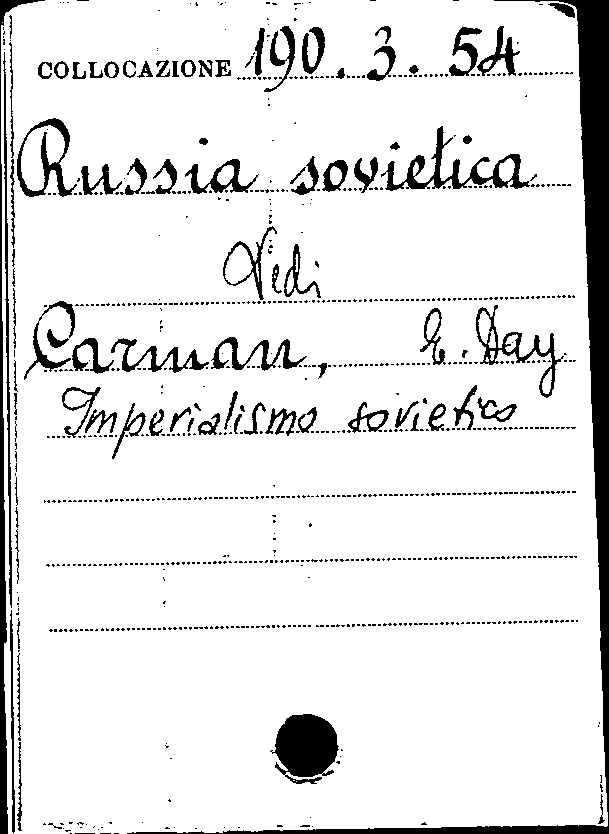 COLLOCAZIONE 190.3.54
Russia sovietica
Vedi
Carman, E. Day
Imperialismo sovietico